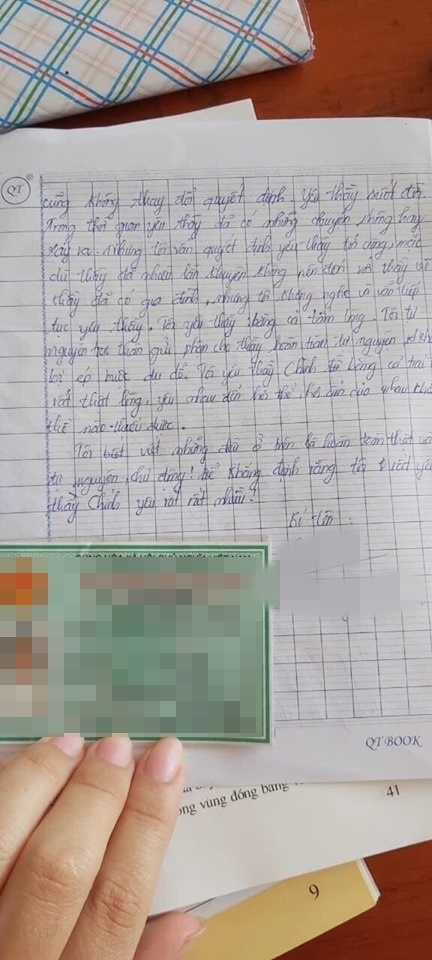 QT
cũng không thay đổi quyết định yêu thầy suốt đời.
Trong thời gian yêu thầy đã có những chuyện không hay
xảy ra. Nhưng tôi vẫn quyết định yêu thầy tới cùng, mặc
dù thầy đã nhiều lần khuyên không nên đến với thầy vì
thầy đã có gia đình, nhưng tôi không nghe và vẫn tiếp
tục yêu thầy. Tôi yêu thầy bằng cả tấm lòng. Tôi tự
nguyện trao thân gửi phận cho thầy hoàn toàn tự nguyện
bị ép buộc dụ dỗ. Tôi yêu thầy Chính tôi bằng cả trái
rất thật lòng, yêu nhau đến hơi thở, của nhau
thể nào thiếu được.
Tôi viết những chữ ở trên là hoàn toàn thật và
tự nguyện, chủ động! Để khẳng định rằng tôi yêu
thầy Chính yêu rất rất nhiều!
Kí tên:
QT BOOK
ng vùng đồng bằng
41
9